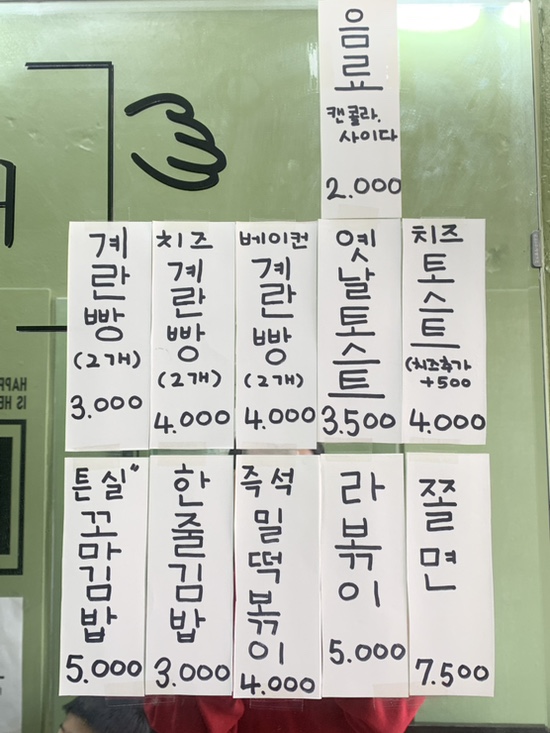 음료
캔콜라,
사이다
2.000
계란빵
(2개)
3.000
치즈
계란빵
(2개)
4.000
베이컨
계란빵
(2개)
4.000
옛날토스트
3.500
치즈
토스트
(치즈추가
+500
4.000
튼실"
꼬마김밥
5.000
한줄김밥
3.000
즉석
밀떡볶이
4.000
라볶이
5.000
쫄면
7.500
HAPP
IS HE